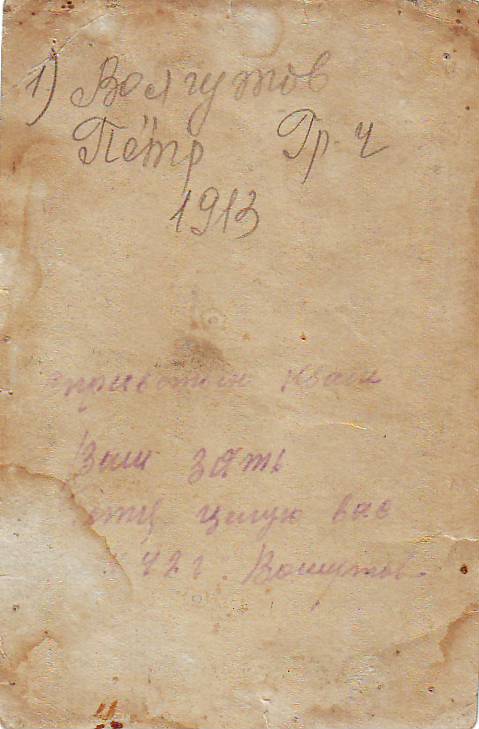 1) Волгутов
Пётр Гр-ч
1913
приветом к вам
Ваш зять
целую вас
42 г.